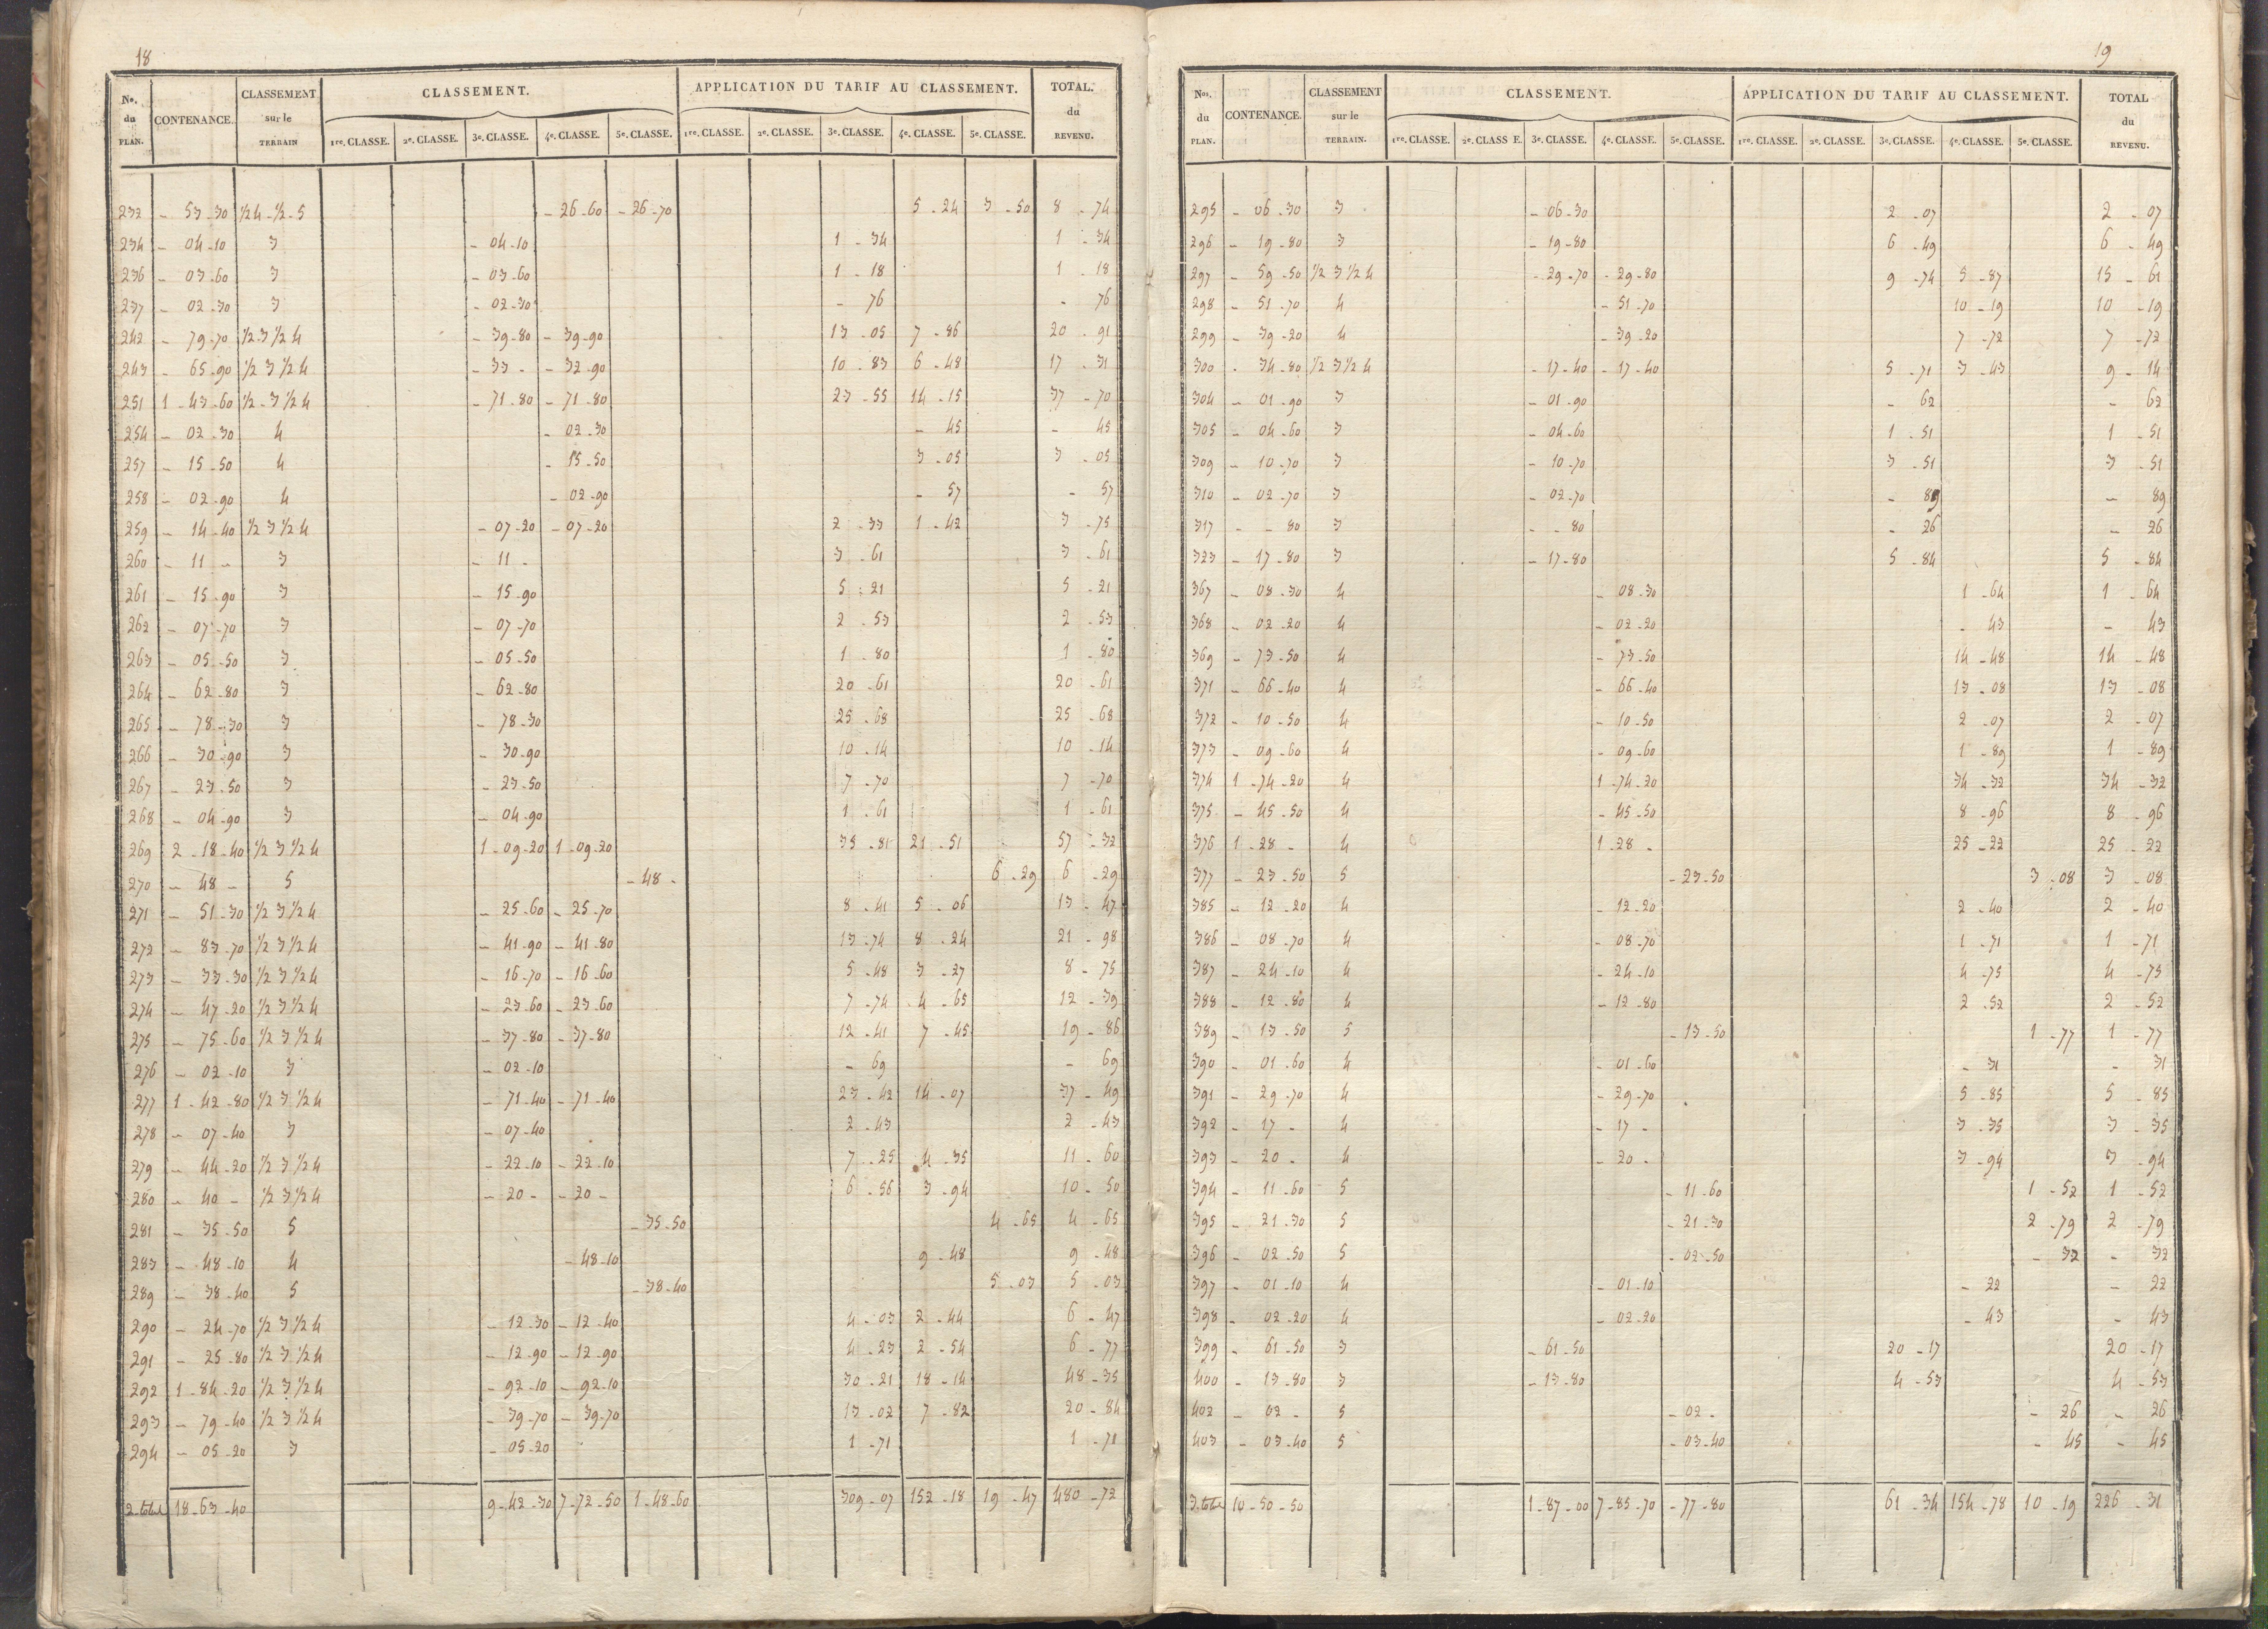 18
Nos. du PLAN. CONTENANCE. CLASSEMENT sur le TERRAIN CLASSEMENT. APPLICATION DU TARIF AU CLASSEMENT. TOTAL. du REVENU.
1re. CLASSE. 2e. CLASSE. 3e. CLASSE. 4e. CLASSE. 5e. CLASSE. 1re. CLASSE. 2e. CLASSE. 3e. CLASSE. 4e. CLASSE. 5e. CLASSE.
232 - 53-30 1/2 4-1/2-5 - 26-60 - 26-70 5-24 3-50 8-74
234 - 04-10 3 - 04-10 1-34 1-34
236 - 03-60 3 - 03-60 1-18 1-18
237 - 02-30 3 - 02-30 - 76 - 76
242 - 79-70 1/2 3 1/2 4 - 39-80 - 39-90 13-05 7-86 20-91
243 - 65-90 1/2 3 1/2 4 - 33 - - 32-90 10-83 6-48 17-31
251 1-43-60 1/2-3 1/2 4 - 71-80 - 71-80 23-55 14-15 37-70
254 - 02-30 4 - 02-30 - 45 - 45
257 - 15-50 4 - 15-50 3-05 3-05
258 - 02-90 4 - 02-90 - 57 - 57
259 - 14-40 1/2 3 1/2 4 - 07-20 - 07-20 2-33 1-42 3-75
260 - 11 - 3 - 11 - 3-61 3-61
261 - 15-90 3 - 15-90 5-21 5-21
262 - 07-70 3 - 07-70 2-53 2-53
263 - 05-50 3 - 05-50 1-80 1-80
264 - 62-80 3 - 62-80 20-61 20-61
265 - 78-30 3 - 78-30 25-68 25-68
266 - 30-90 3 - 30-90 10-14 10-14
267 - 23-50 3 - 23-50 7-70 7-70
268 - 04-90 3 - 04-90 1-61 1-61
269 2-18-40 1/2 3 1/2 4 1-09-20 1-09-20 35-81 21-51 57-32
270 - 48 - 5 - 48 - 6-29 6-29
271 - 51-30 1/2 3 1/2 4 - 25-60 - 25-70 8-41 5-06 13-47
272 - 83-70 1/2 3 1/2 4 - 41-90 - 41-80 13-74 8-24 21-98
273 - 33-30 1/2 3 1/2 4 - 16-70 - 16-60 5-48 3-27 8-75
274 - 47-20 1/2 3 1/2 4 - 23-60 - 23-60 7-74 4-65 12-39
275 - 75-60 1/2 3 1/2 4 - 37-80 - 37-80 12-41 7-45 19-86
276 - 02-10 3 - 02-10 - 69 - 69
277 1-42-80 1/2 3 1/2 4 - 71-40 - 71-40 23-42 14-07 37-49
278 - 07-40 3 - 07-40 2-43 2-43
279 - 44-20 1/2 3 1/2 4 - 22-10 - 22-10 7-25 4-35 11-60
280 - 40 - 1/2 3 1/2 4 - 20 - - 20 - 6-56 3-94 10-50
281 - 35-50 5 - 35-50 4-65 4-65
283 - 48-10 4 - 48-10 9-48 9-48
289 - 38-40 5 - 38-40 5-03 5-03
290 - 24-70 1/2 3 1/2 4 - 12-30 - 12-40 4-03 2-44 6-47
291 - 25-80 1/2 3 1/2 4 - 12-90 - 12-90 4-23 2-54 6-77
292 1-84-20 1/2 3 1/2 4 - 92-10 - 92-10 30-21 18-14 48-35
293 - 79-40 1/2 3 1/2 4 - 39-70 - 39-70 13-02 7-82 20-84
294 - 05-20 3 - 05-20 1-71 1-71
2-total 18-63-40 9-42-30 7-72-50 1-48-60 309-07 152-18 19-47 480-72
19
Nos. du PLAN. CONTENANCE. CLASSEMENT sur le TERRAIN. CLASSEMENT. APPLICATION DU TARIF AU CLASSEMENT. TOTAL du REVENU.
1re. CLASSE. 2e. CLASS E. 3e. CLASSE. 4e. CLASSE. 5e. CLASSE. 1re. CLASSE. 2e. CLASSE. 3e. CLASSE. 4e. CLASSE. 5e. CLASSE.
295 - 06-30 3 - 06-30 2-07 2-07
296 - 19-80 3 - 19-80 6-49 6-49
297 - 59-50 1/2 3 1/2 4 - 29-70 - 29-80 9-74 5-87 15-61
298 - 51-70 4 - 51-70 10-19 10-19
299 - 39-20 4 - 39-20 7-72 7-72
300 - 34-80 1/2 3 1/2 4 - 17-40 - 17-40 5-71 3-43 9-14
304 - 01-90 3 - 01-90 - 62 - 62
305 - 04-60 3 - 04-60 1-51 1-51
309 - 10-70 3 - 10-70 3-51 3-51
310 - 02-70 3 - 02-70 - 89 - 89
317 - - 80 3 - - 80 - 26 - 26
323 - 17-80 3 - 17-80 5-84 5-84
367 - 08-30 4 - 08-30 1-64 1-64
368 - 02-20 4 - 02-20 - 43 - 43
369 - 73-50 4 - 73-50 14-48 14-48
371 - 66-40 4 - 66-40 13-08 13-08
372 - 10-50 4 - 10-50 2-07 2-07
373 - 09-60 4 - 09-60 1-89 1-89
374 1-74-20 4 1-74-20 34-32 34-32
375 - 45-50 4 - 45-50 8-96 8-96
376 1-28 - 4 1-28 - 25-22 25-22
377 - 23-50 5 - 23-50 3-08 3-08
385 - 12-20 4 - 12-20 2-40 2-40
386 - 08-70 4 - 08-70 1-71 1-71
387 - 24-10 4 - 24-10 4-75 4-75
388 - 12-80 4 - 12-80 2-52 2-52
389 - 13-50 5 - 13-50 1-77 1-77
390 - 01-60 4 - 01-60 - 31 - 31
391 - 29-70 4 - 29-70 5-85 5-85
392 - 17 - 4 - 17 - 3-35 3-35
393 - 20 - 4 - 20 - 3-94 3-94
394 - 11-60 5 - 11-60 1-52 1-52
395 - 21-30 5 - 21-30 2-79 2-79
396 - 02-50 5 - 02-50 - 32 - 32
397 - 01-10 4 - 01-10 - 22 - 22
398 - 02-20 4 - 02-20 - 43 - 43
399 - 61-50 3 - 61-50 20-17 20-17
400 - 13-80 3 - 13-80 4-53 4-53
402 - 02 - 5 - 02 - - 26 - 26
403 - 03-40 5 - 03-40 - 45 - 45
3.total 10-50-50 1-87-00 7-85-70 - 77-80 61-34 154-78 10-19 226-31